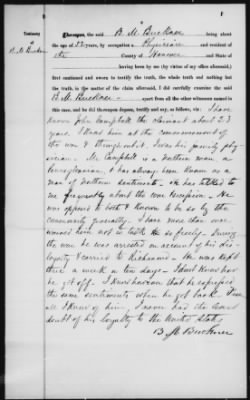 1
Testimony
of
Thereupon, the said B. M. Buckner being about
the age of 52 years, by occupation a Physician and resident of
the County of Hanover and State of
having been by me (by virtue of my office aforesaid,)
first cautioned and sworn to testify the truth, the whole truth and nothing but
the truth, in the matter of the claim aforesaid, I did carefully examine the said
B. M. Buckner apart from all the other witnesses named in
this case, and he did thereupon depose, testify and say, as follows, viz: I have
known John Campbell the claimant about 23
years. I knew him at the commencement of
the war & throughout. I was his family phy-
sician. Mr Campbell is a northern man a
Pennsylvanian, & has always been known as a
man of northern sentiments. He has talked to
me frequently about the war Secession. He
was opposed to both & known to be so by the
community generally. I have more than once
warned him not to talk so freely. During
the war he was arrested on account of his dis-
loyalty & carried to Richmond. He was kept
there a week or ten days. I dont know how
he got off. I know however that he expressed
the same sentiments when he got back. From
all I knew of him, I never had the least
doubt of his loyalty to the United States.
B. M. Buckner